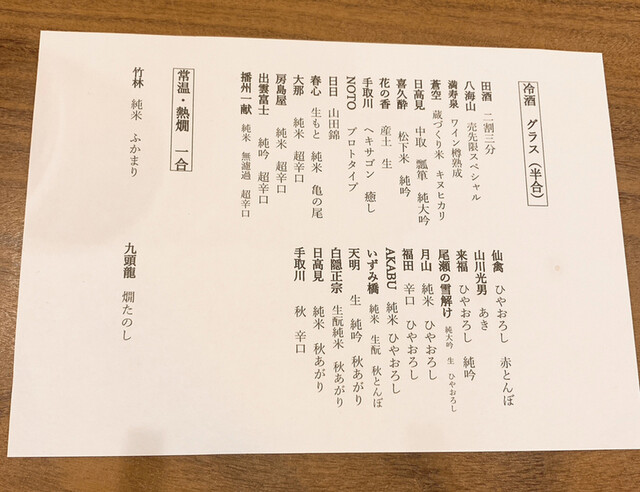 冷酒 グラス（半合）
田酒 二割三分
八海山 売先限スペシャル
満寿泉 ワイン樽熟成
蒼空 蔵づくり米 キヌヒカリ
日高見 中取 瓢箪 純大吟
喜久酔 松下米 純吟
花の香 産土 生
手取川 ヘキサゴン 癒し
NOTO プロトタイプ
日日 山田錦
春心 生もと 純米 亀の尾
大那 純米 超辛口
房島屋 純米 超辛口
出雲富士 純吟 超辛口
播州一献 純米 無濾過 超辛口
仙禽 ひやおろし 赤とんぼ
山川光男 あき
来福 ひやおろし 純吟
尾瀬の雪解け 純大吟 生 ひやおろし
月山 純米 ひやおろし
福田 辛口 ひやおろし
AKABU 純米 ひやおろし
いずみ橋 純米 生酛 秋とんぼ
天明 生 純吟 秋あがり
白隠正宗 生酛純米 秋あがり
日高見 純米 秋あがり
手取川 秋 辛口
常温・熱燗 一合
竹林 純米 ふかまり
九頭龍 燗たのし